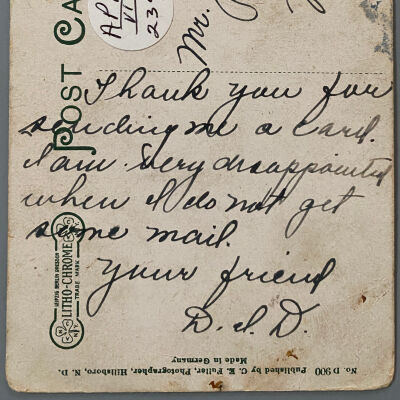 POST CA
AP
VI
23
Mr.
Thank you for
sending me a card.
I am very disappointed
when I do not get
some mail.
Your friend
D. I. D.
LEIPZIG BERLIN DRESDEN
LITHO-CHROME
TRADE MARK
No. D 900 Published by C. E. Fuller, Photographer, Hillsboro, N. D.
Made in Germany